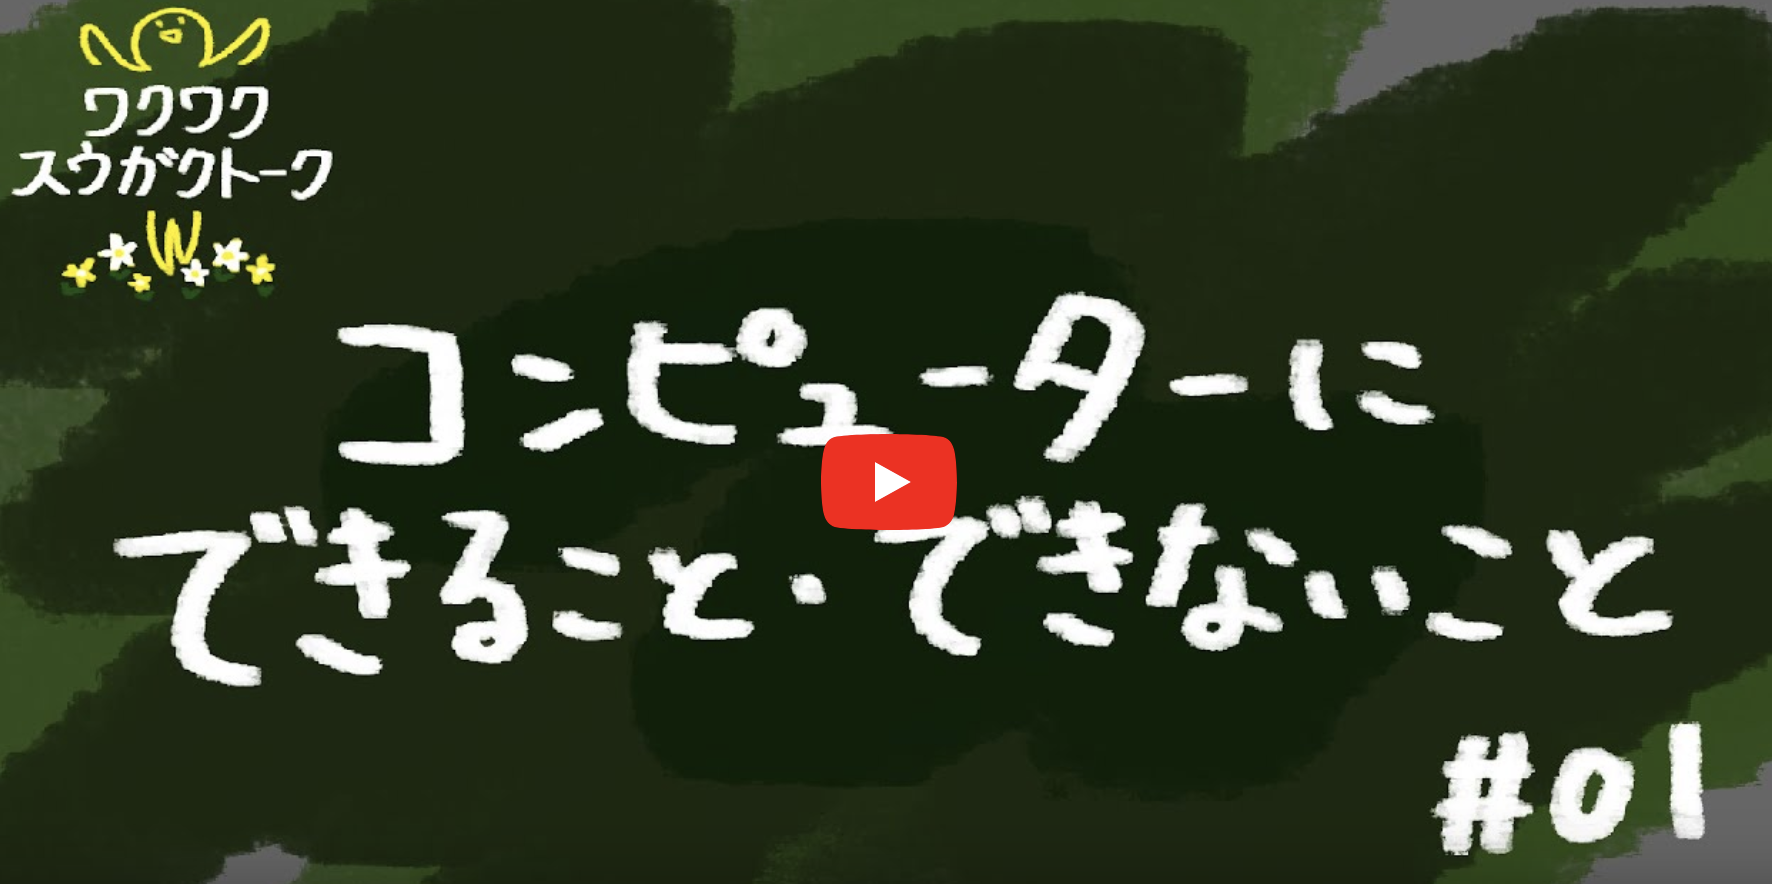 ワクワク
スウガクトーク
W
コンピューターに
できること・できないこと
#01